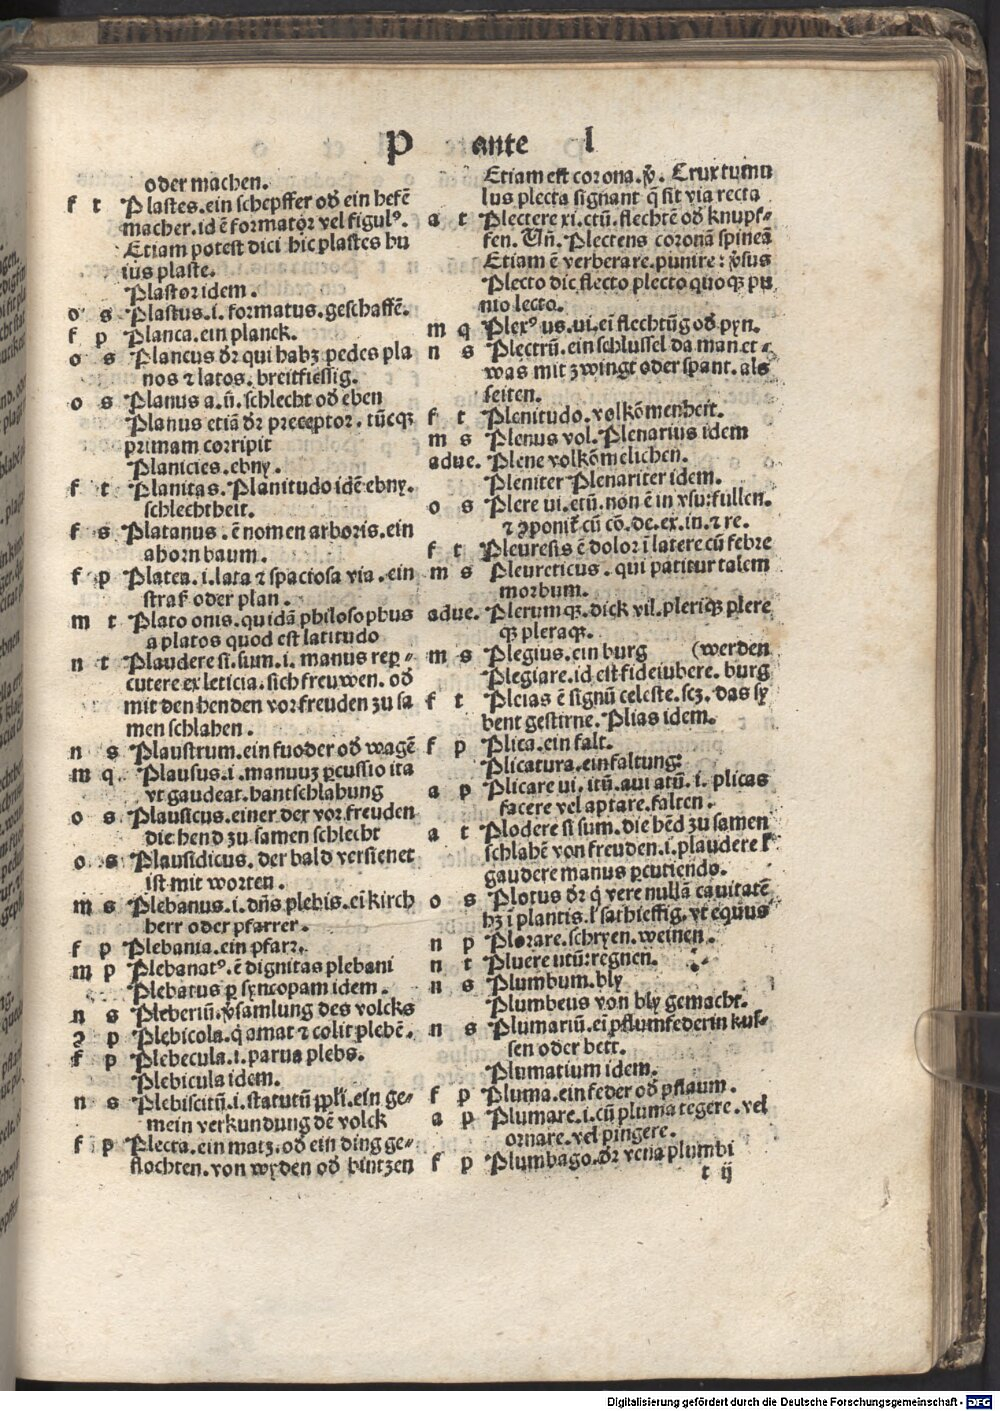 P ante l
oder machen.
f t Plastes.ein schepffer od̕ ein hefē
macher.id ē formator vel figulꝰ.
Etiam potest dici hic plastes hu
ius plaste.
Plastor idem.
o s Plastus.i. formatus.geschaffē.
f p Planca.ein planck.
o s Plancus dr̄ qui habꝫ pedes pla
nos ⁊ latos.breitfiessig.
o s Planus a.ū.schlecht od̕ eben
Planus etiā dr̄ preceptor.tūcqꝫ
primam corripit
Planicies.ebny.
f t Planitas.Planitudo idē ebny.
schlechtheit.
f s Platanus.ē nomen arboris.ein
ahorn baum.
f p Platea.i.lata ⁊ spaciosa via.ein
straß oder plan.
m t Plato onis.quidā philosophus
a platos quod est latitudo
n t Plaudere si.sum.i. manus reꝑ-
cutere ex leticia.sich freuwen.od̕
mit den henden vor freuden zu sa
men schlahen.
n s Plaustrum.ein fuoder od̕ wagē
m q. Plausus.i.manuuꝫ ꝑcussio ita
vt gaudeat.hantschlahung
o s Plausicus.einer der vor freuden
die hend zu samen schlecht
o s Plausidicus.der bald versienet
ist mit worten.
m s Plebanus.i.dn̄s plebis.eī kirch
herr oder pfarrer.
f p Plebania.ein pfarr.
m p Plebanatꝰ.ē dignitas plebani
Plebatus ꝑ syncopam idem.
n s Pleberiū.v̕samlung des volcks
ꝯ p Plebicola.q̄ amat ⁊ colit plebē.
f p Plebecula.i.parua plebs.
Plebicula idem.
n s Plebiscitū.i.statutū ppl̕i.ein ge-
mein verkundung dē volck
f p Plecta.ein matz.od̕ ein ding ge-
flochten.von wyden od̕ bintzen
Etiam est corona.v̕. Crux tumu
lus plecta signant q̄ sit via recta
a t Plectere xi.ctū.flechtē od̕ knupf-
fen.Un̄.Plectens coronā spineā
Etiam ē verberare.punire:v̕sus
Plecto dic flecto plecto quoqꝫ pu
nio lecto.
m q Plexꝰ us.ui.eī flechtūg od̕ pyn.
n s Plectrū.ein schlussel da man et-
was mit zwingt oder spant.als
seiten.
f t Plenitudo.volkōmenheit.
m s Plenus vol.Plenarius idem
adue. Plene volkōmelichen.
Pleniter Plenariter idem.
o s Plere ui.etū.non ē in vsu:fullen.
⁊ ꝯponit̕ cū cō.de.ex.in.⁊ re.
f t Pleuresis ē dolor ī latere cū febre
m s Pleureticus.qui patitur talem
morbum.
adue. Plerumqꝫ.dick vil.pleriqꝫ plere
qꝫ pleraqꝫ.
m s Plegius.ein burg (werden
Plegiare.id est fideiubere.burg
f t Pleias ē signū celeste.scꝫ.das sy
bent gestirne.Plias idem.
f p Plica.ein falt.
Plicatura.einfaltung:
a p Plicare ui.itū.aui atū.i.plicas
facere vel aptare.falten.
a t Plodere si sum.die hēd zu samen
schlahē von freuden.i.plaudere l̕
gaudere manus ꝑcutiendo.
o s Plotus dr̄ q̄ vere nullā cauitatē
hꝫ ī plantis.l̕ sathieffig.vt equus
n p Plorare.schryen.weinen.
n t Pluere utū:regnen.
n s Plumbum.bly
Plumbeus von bly gemacht.
n s Plumariū.eī pflumfederin kus-
sen oder bett.
Plumatium idem.
f p Pluma.ein feder od̕ pflaum.
a p Plumare.i.cū pluma tegere.vel
ornare.vel pingere.
f p Plumbago.dr̄ vena plumbi
t ij
Digitalisierung gefördert durch die Deutsche Forschungsgemeinschaft - DFG